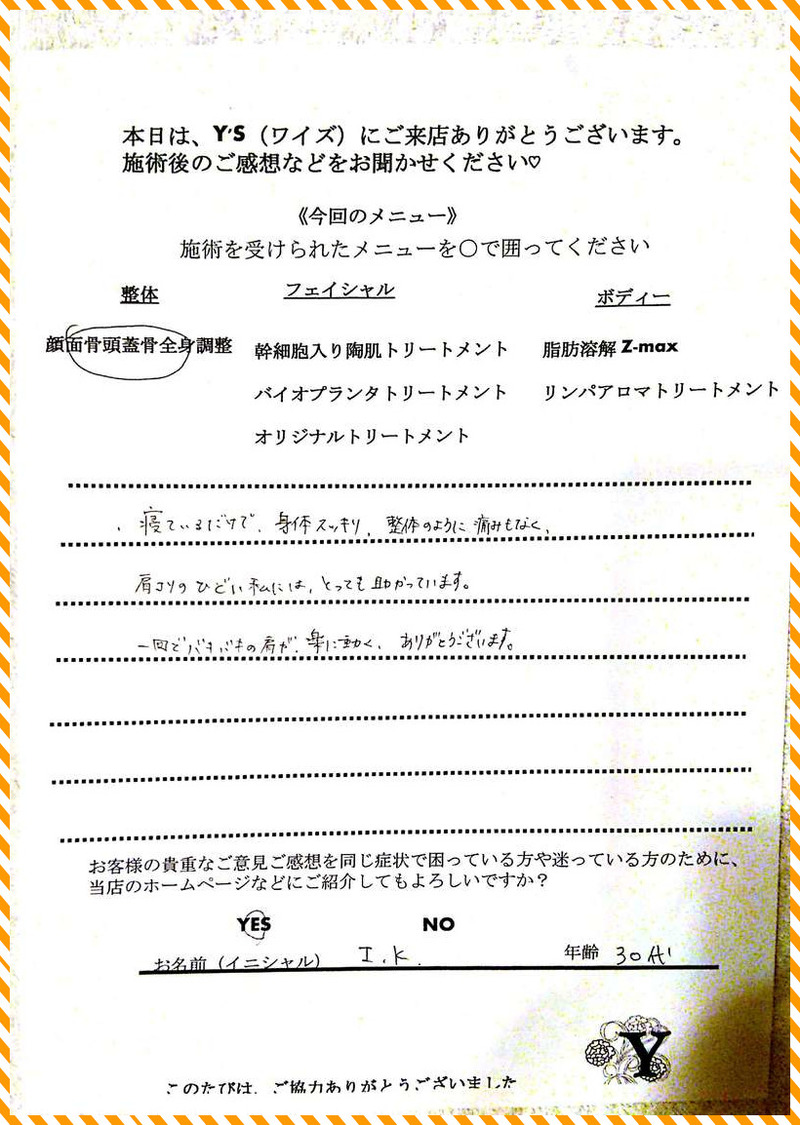 本日は、Y'S（ワイズ）にご来店ありがとうございます。
施術後のご感想などをお聞かせください♡
《今回のメニュー》
施術を受けられたメニューを〇で囲ってください
整体 フェイシャル ボディー
顔面骨頭蓋骨全身調整 幹細胞入り陶肌トリートメント 脂肪溶解 Z-max
バイオプランタトリートメント リンパアロマトリートメント
オリジナルトリートメント
寝ているだけで、身体スッキリ、整体のように痛みもなく、
肩コリのひどい私には、とっても助かっています。
一回でバキバキの肩が、楽に動く、ありがとうございます。
お客様の貴重なご意見ご感想を同じ症状で困っている方や迷っている方のために、
当店のホームページなどにご紹介してもよろしいですか？
YES NO
お名前（イニシャル） I.K. 年齢 30代
Y
このたびは、ご協力ありがとうございました